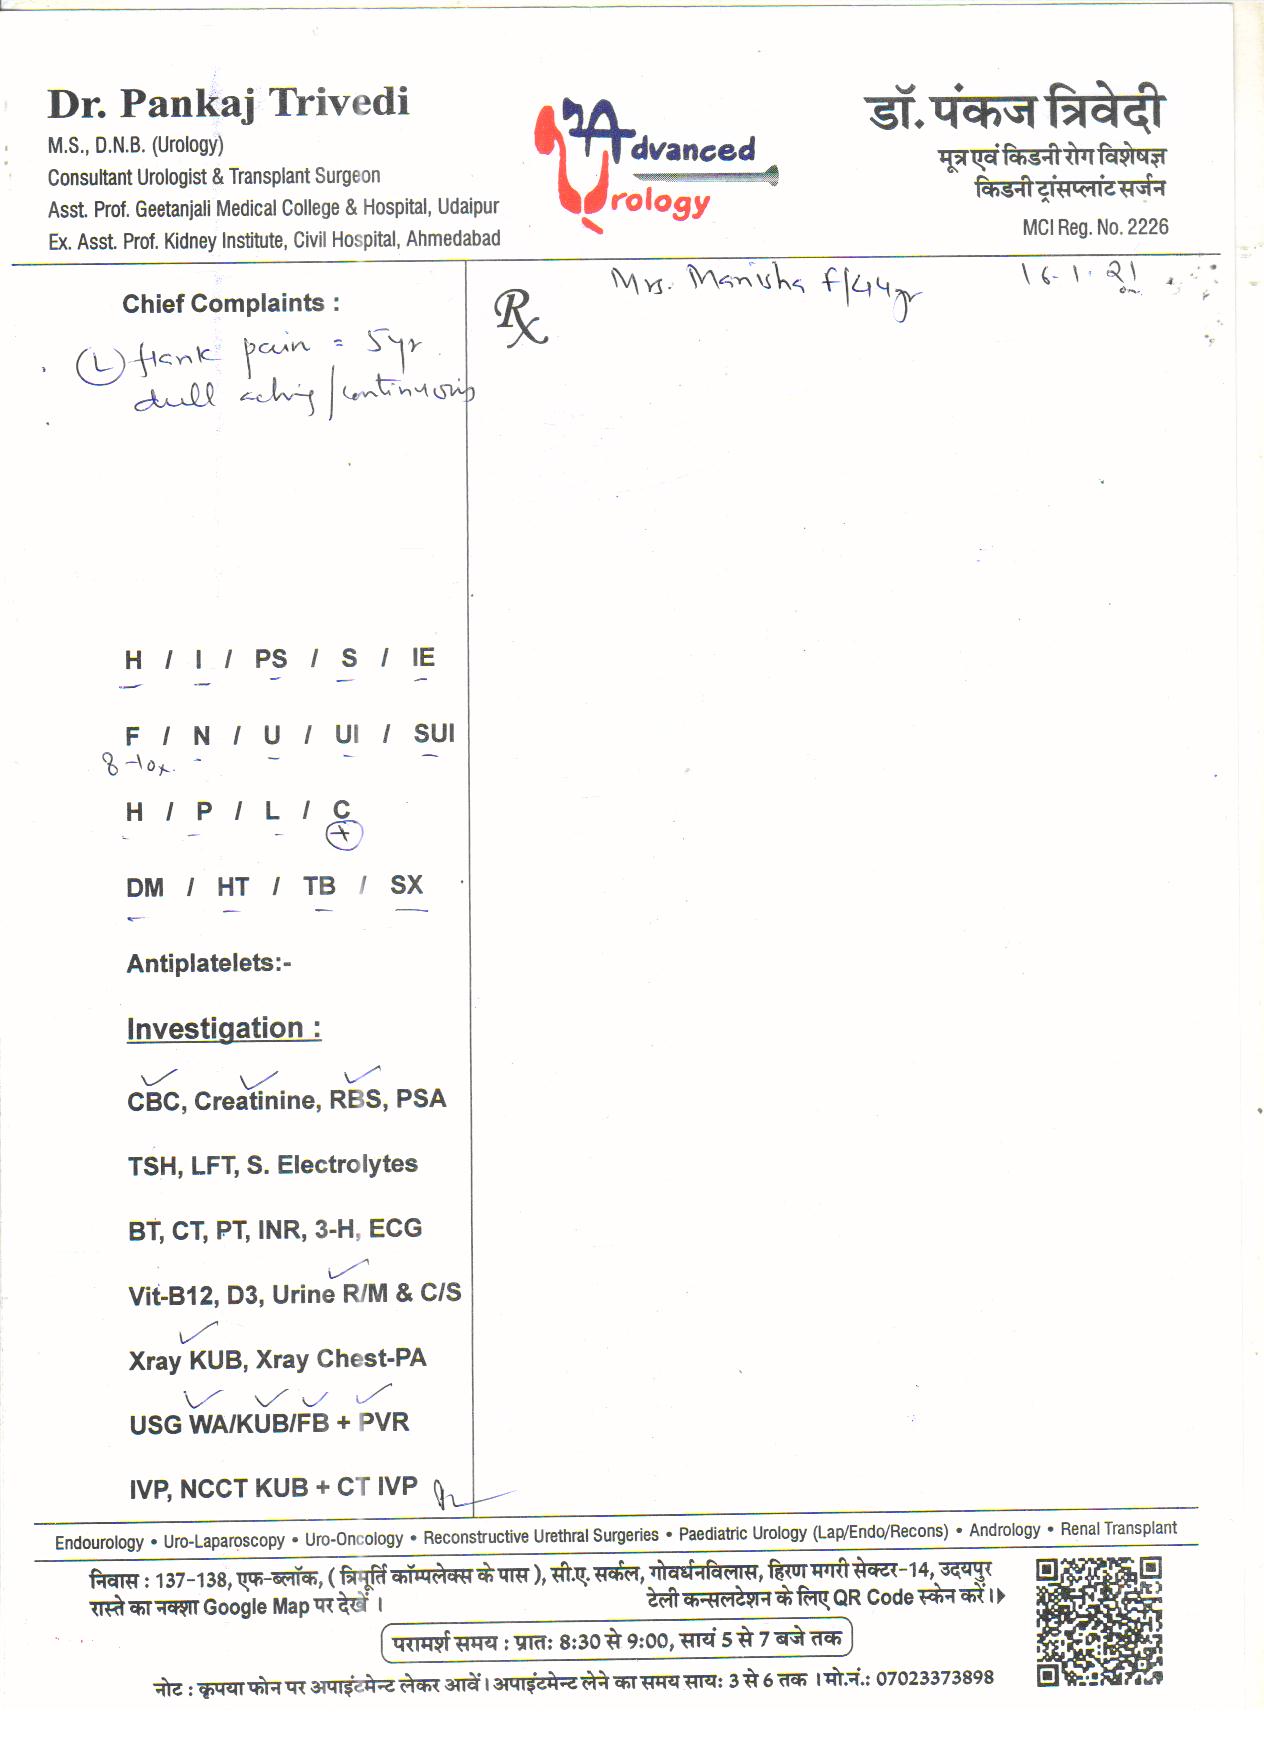 Dr. Pankaj Trivedi
M.S., D.N.B. (Urology)
Consultant Urologist & Transplant Surgeon
Asst. Prof. Geetanjali Medical College & Hospital, Udaipur
Ex. Asst. Prof. Kidney Institute, Civil Hospital, Ahmedabad
Advanced
Urology
डॉ. पंकज त्रिवेदी
मूत्र एवं किडनी रोग विशेषज्ञ
किडनी ट्रांसप्लांट सर्जन
MCI Reg. No. 2226
Mrs. Manisha F/44yr 16.1.21
Rx
Chief Complaints :
(L) flank pain = 5yr
dull aching / continuous
H / I / PS / S / IE
- - - - -
F / N / U / UI / SUI
8-10x. - - - -
H / P / L / C
- - - +
DM / HT / TB / SX
- - - -
Antiplatelets:-
Investigation :
✓ ✓ ✓
CBC, Creatinine, RBS, PSA
TSH, LFT, S. Electrolytes
BT, CT, PT, INR, 3-H, ECG
✓
Vit-B12, D3, Urine R/M & C/S
✓
Xray KUB, Xray Chest-PA
✓ ✓ ✓ ✓
USG WA/KUB/FB + PVR
IVP, NCCT KUB + CT IVP
Endourology • Uro-Laparoscopy • Uro-Oncology • Reconstructive Urethral Surgeries • Paediatric Urology (Lap/Endo/Recons) • Andrology • Renal Transplant
निवास : 137-138, एफ-ब्लॉक, ( त्रिमूर्ति कॉम्पलेक्स के पास ), सी.ए. सर्कल, गोवर्धनविलास, हिरण मगरी सेक्टर-14, उदयपुर
रास्ते का नक्शा Google Map पर देखें । टेली कन्सलटेशन के लिए QR Code स्केन करें।
परामर्श समय : प्रातः 8:30 से 9:00, सायं 5 से 7 बजे तक
नोट : कृपया फोन पर अपाइंटमेन्ट लेकर आवें। अपाइंटमेन्ट लेने का समय सायः 3 से 6 तक । मो.नं.: 07023373898